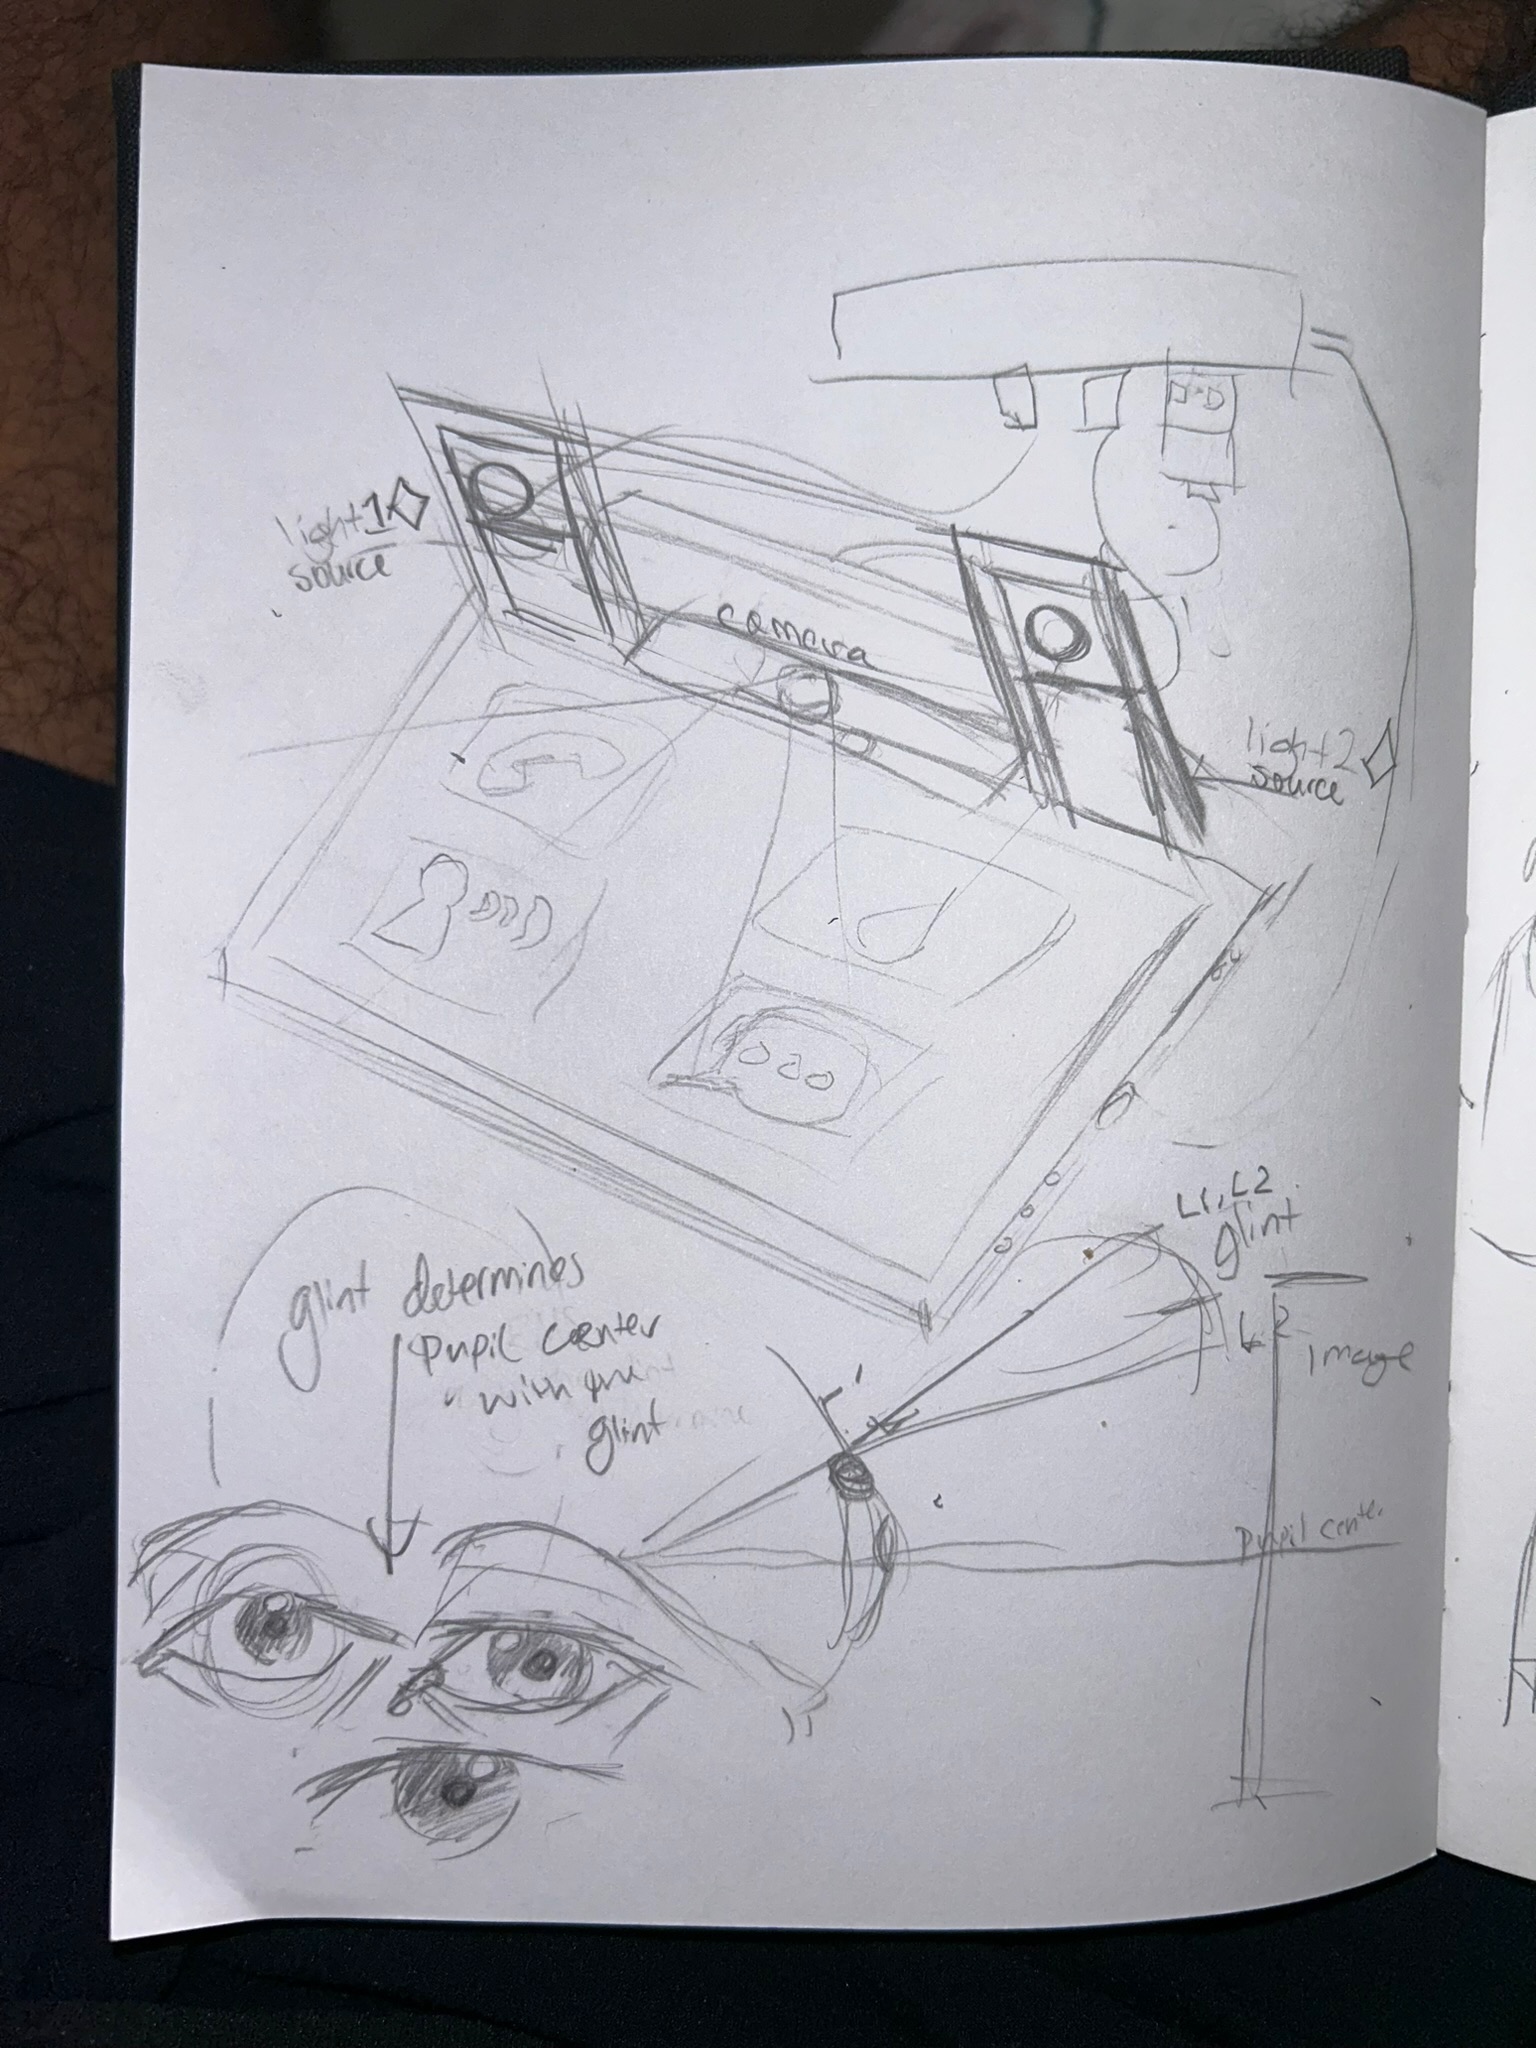 light 1
source
camera
light 2
source
L1, L2
glint
glint determines
pupil center
with
glint
image
pupil center